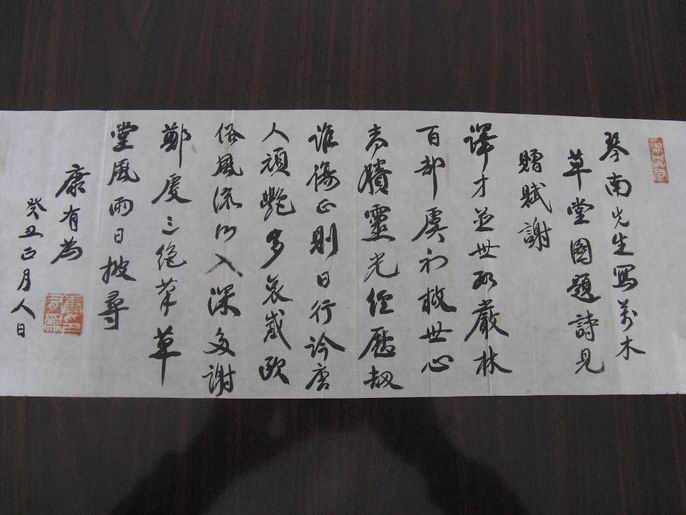 琴南先生寫萬木
草堂圖題詩見
贈賦謝
譯才並世數嚴林
百部虞初救世心
喬木靈光經歷劫
誰傷正則日行吟唐
人頑艷多哀感歐
俗風流所入深多謝
鄭虔三絕筆草
堂風雨日披尋
康有為
癸丑正月人日